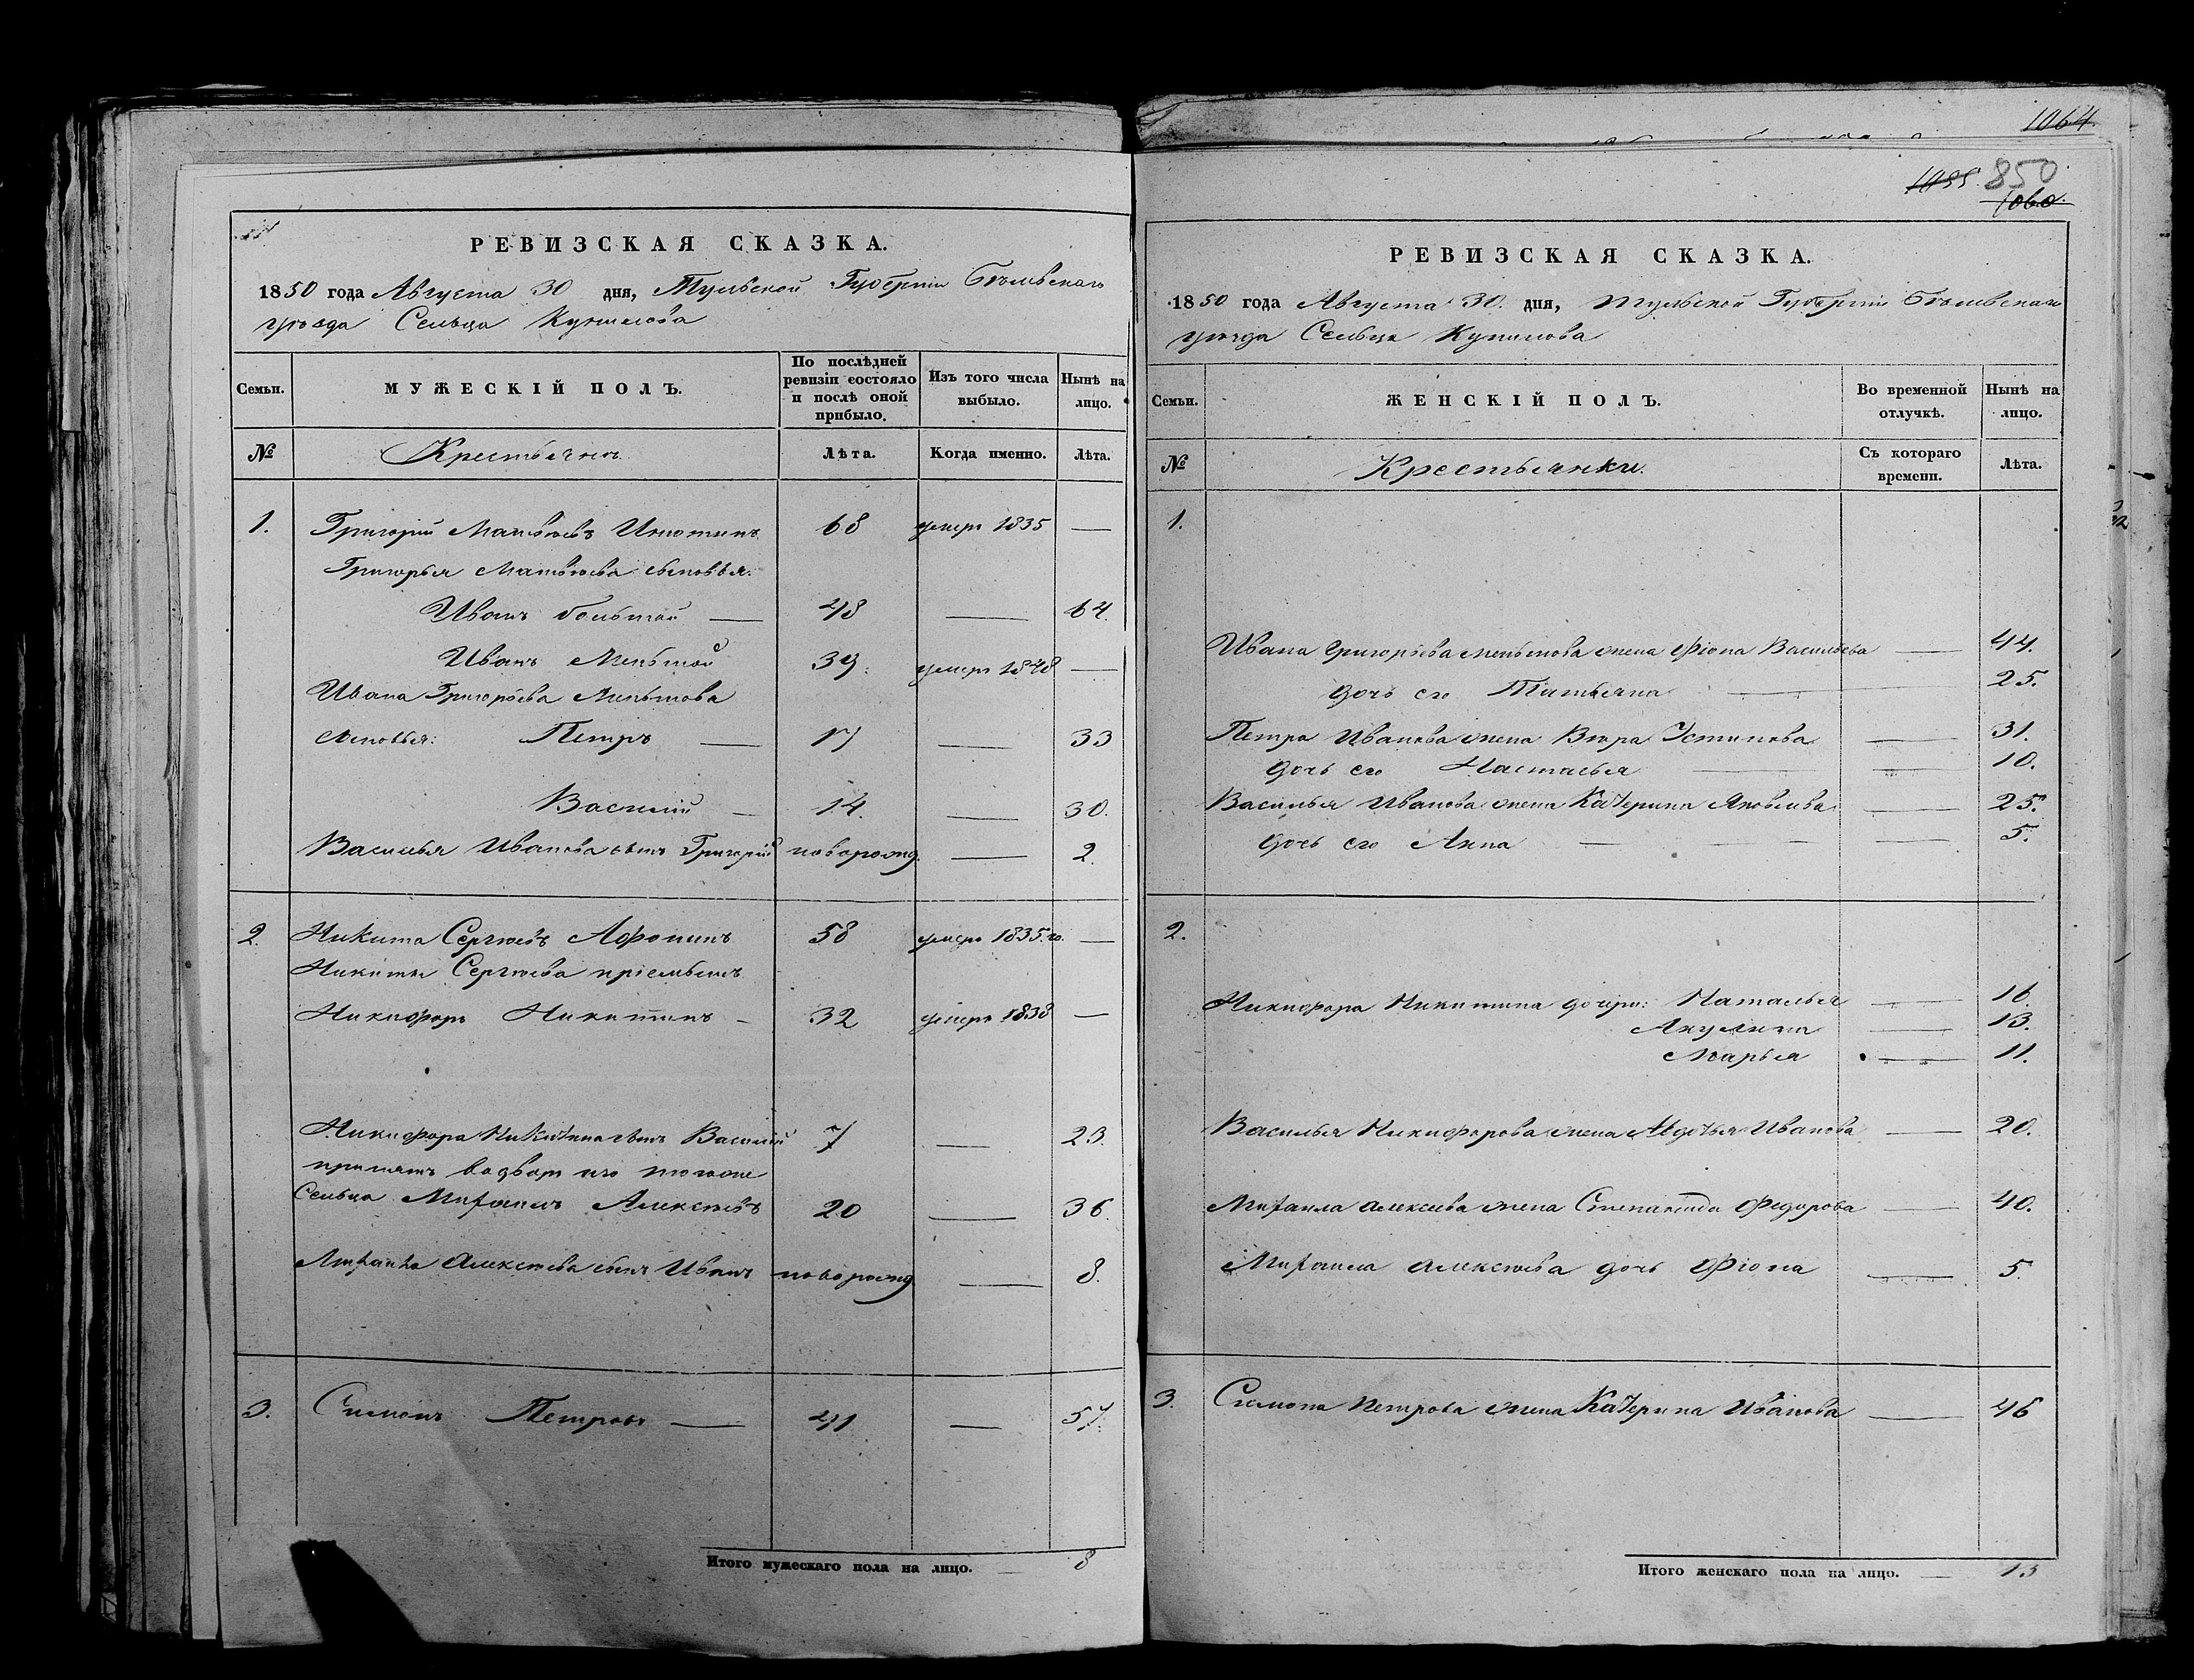 1064.
1055. 850
1060.
РЕВИЗСКАЯ СКАЗКА.
1850 года Августа 30 дня, Тульской Губерніи Бѣлевскаго
уѣзда Сельца
Семьи.
МУЖЕСКІЙ ПОЛЪ.
По послѣдней ревизіи состояло и послѣ оной прибыло.
Изъ того числа выбыло.
Нынѣ на лицо.
№
Крестьяне
Лѣта.
Когда именно.
Лѣта.
1. Григорій Матвѣевъ 68 умеръ 1835 —
Григорья Матвѣева сыновья:
Иванъ большой — 48 — 64.
Иванъ Меньшой 39. умеръ 1848 —
Ивана Григорьева Меньшова
сыновья: Петръ — 17 — 33
Василій — 14. — 30.
Василья Иванова сынъ Григорій новорожд. — 2.
2. Никита Сергѣевъ Афонинъ 58 умеръ 1835 го. —
Никиты Сергѣева пріемышъ
Никифоръ Никитинъ — 32 умеръ 1838 —
Никифора Никитина сынъ Василій 7 — 23.
принятъ во дворъ изъ того же
Сельца Михаилъ Алексѣевъ 20 — 36.
Михайла Алексѣева сынъ Иванъ новорожд — 8.
3. Симонъ Петровъ — 41 — 57.
Итого мужескаго пола на лицо. — 8
РЕВИЗСКАЯ СКАЗКА.
1850 года Августа 30. дня, Тульской Губерніи Бѣлевскаго
уѣзда Сельца
Семьи.
ЖЕНСКІЙ ПОЛЪ.
Во временной отлучкѣ.
Нынѣ на лицо.
№
Крестьянки.
Съ котораго времени.
Лѣта.
1.
Ивана Григорьева меньшова жена Фіона Васильева — 44.
дочь его Татьяна — 25.
Петра Иванова жена Вѣра Устинова — 31.
дочь его Настасья — 10.
Василья Иванова жена Катерина Яковлева — 25.
дочь его Анна — 5.
2.
Никифора Никитина дочери: Наталья — 16.
Акулина — 13.
Марья — 11.
Василья Никифорова жена Авдотья Иванова — 20.
Михаила Алексѣева жена Степанида Федорова — 40.
Михаила Алексѣева дочь Фіона — 5.
3. Симона Петрова жена Катерина Иванова — 46
Итого женскаго пола на лицо. — 13